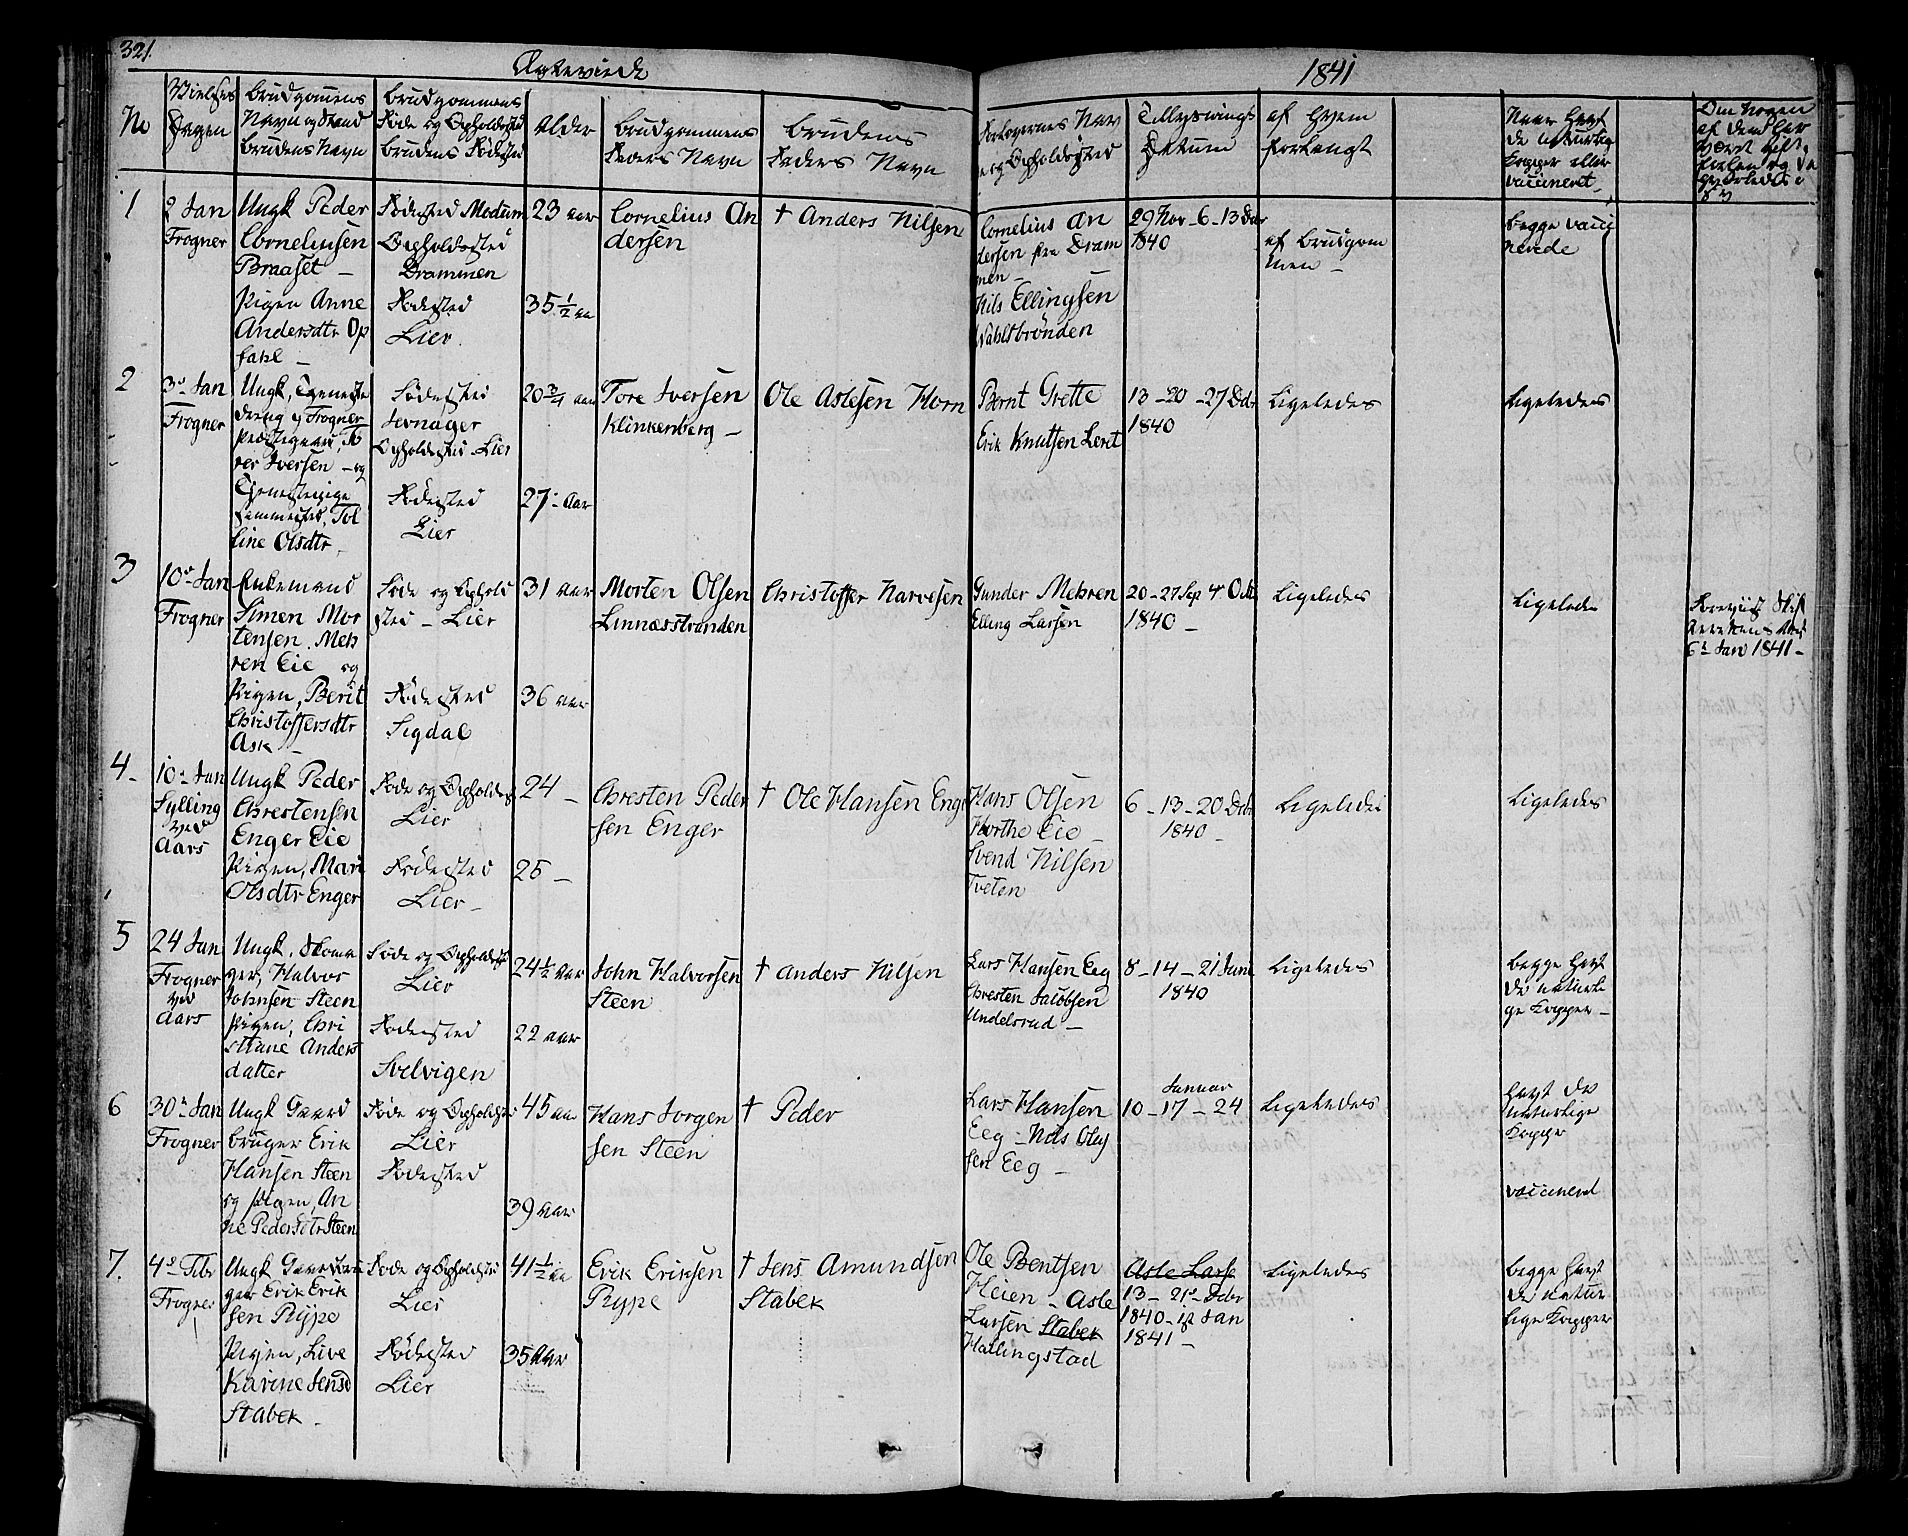 321.
Ægteviede
1841
No
Vielses
Dagen
Brudgommens
Navn og Stand
Brudens Navn
Brudgommens
Føde og Opholdssted
Brudens Fødested
Alder
Brudgommens
Faders Navn
Brudens
Faders Navn
Forlovernes Nav
e og Opholdssted
Tillysnings
Datum
af Hvem
forlangt
Naar havt
de naturlige
Kopper eller
vaccineret
Om Nogen
af dem har
været gift,
1
2 Jan
Frogner
Ungk Peder
Corneliusen
Braaset
Pigen Anne
Andersdtr Op
sahl
Fødested Modum
Opholdssted
Drammen
Fødested
Lier
23 aar
35 1/2 aar
Cornelius An
dersen
† Anders Nilsen
Cornelius An
dersen fra Dram
men
Nils Ellingsen
Wahlsbrønden
29 Nov - 6 - 13 Dbr
1840
af Brudgom
men
begge vacci
nerede
2
3d Jan
Frogner
Ungk, Tjeneste
dreng p Frogner
Præstegaard, To
rer Iversen - og
Tjenestepige
sammested, Tol
line Olsdtr
Fødested
Jevnager
Opholdssted Lier
Fødested
Lier
20 3/4 aar
27 Aar
Tore Iversen
Klinkenberg
Ole Aslesen Horn
Bernt Grette
Erik Knutsen Lerit
13 - 20 - 27 Dcbr
1840
Ligeledes
Ligeledes
3
10 Jan
Frogner
Enkemand
Simen Mor
tensen Meh
ren Eie og
Pigen, Berit
Christoffersdtr
Ask
Føde og Ophold
sted - Lier
Fødested
Sigdal
31 aar
36 aar
Morten Olsen
Linnæsstranden
Christoffer Narvesen
Gunder Mehren
Elling Larsen
20 - 27 Sep 4 Oct
1840
Ligeledes
Ligeledes
Foreviist Skif
terettens Attest
6 Jan 1841
4
10 Jan
Sylling
ved
Aars
Ungk Peder
Chrestensen
Enger Eie
Pigen, Mari
Olsdtr Enger
Føde og Opholdss
Lier
Fødested
Lier
24
25
Chresten Peder
sen Enger
† Ole Hansen Eng
Hans Olsen
Horthe Eie
Svend Nilsen
Tveten
6 - 13 - 20 Dcbr
1840
Ligeledes
Ligeledes
5
24 Jan
Frogner
ved
Aars
Ungk, Skoma
ger, Halvor
Johnsen Steen
Pigen, Chri
stiane Anders
datter
Føde og Opholdsst
Lier
Fødested
Svelvigen
24 1/2 aar
22 aar
John Halvorsen
Steen
† Anders Nilsen
Lars Hansen Eeg
Chresten Jacobsen
Undelsrud
8 - 14 - 21 Juni
1840
Ligeledes
begge havt
de naturli
ge Kopper
6
30 Jan
Frogner
Ungk Gaard
bruger Erik
Hansen Steen
og Pigen, An
ne Pedersdtr Steen
Føde og Opholdsst
Lier
Fødested
45 aar
39 aar
Hans Jorgen
sen Steen
† Peder
Lars Hansen
Eeg - Nils Olav
sen Eeg
Januar
10 - 17 - 24
Ligeledes
havt de
naturlige
Kopper
vaccineret
7.
4 Febr
Frogner
Ungk Gaardbru
ger Erik Erik
sen Rype
Pigen, Live
Karine Jensd
Stabek
Føde og Opholdssted
Lier
Fødested
Lier
41 1/2 aar
35 Aar
Erik Eriksen
Rype
† Jens Amundsen
Stabek
Ole Bentsen
Heien - Asle
Larsen Stabek
Hallingstad
Asle Larse
13 - 21 - Dcbr
1840 - 1st Jan
1841
Ligeledes
begge havt
de natur
lige Kopper